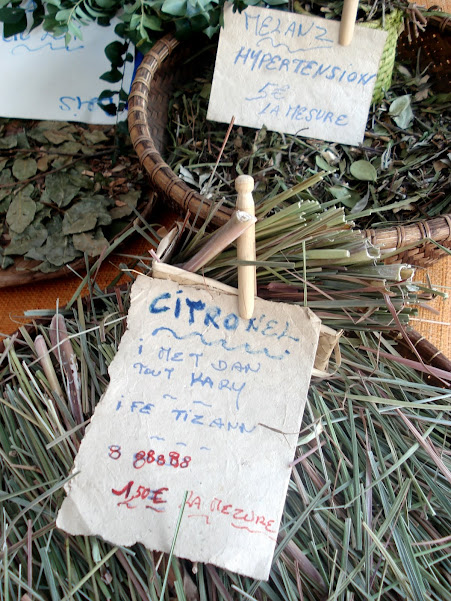 MELANZ
HYPERTENSION
5€
LA MESURE
CITRONEL
i MET DAN
TOUT KARY
i FE TIZANN
8 88888
1,50€ LA MEZURE